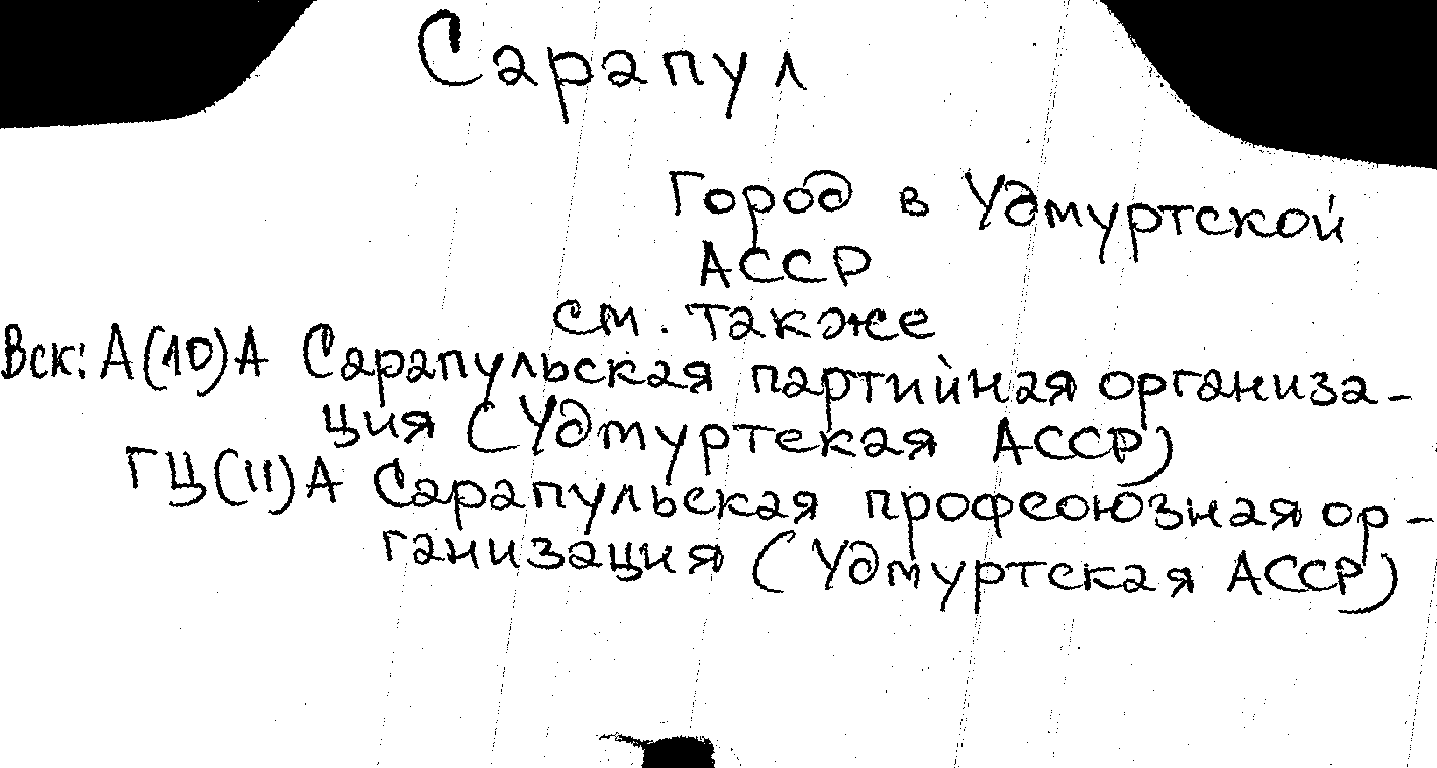 Сарапул
Город в Удмуртской
АССР
см. также
Вск: А(10)А Сарапульская партийная организа-
ция (Удмуртская АССР)
ГЦ(11)А Сарапульская профсоюзная ор-
ганизация (Удмуртская АССР)